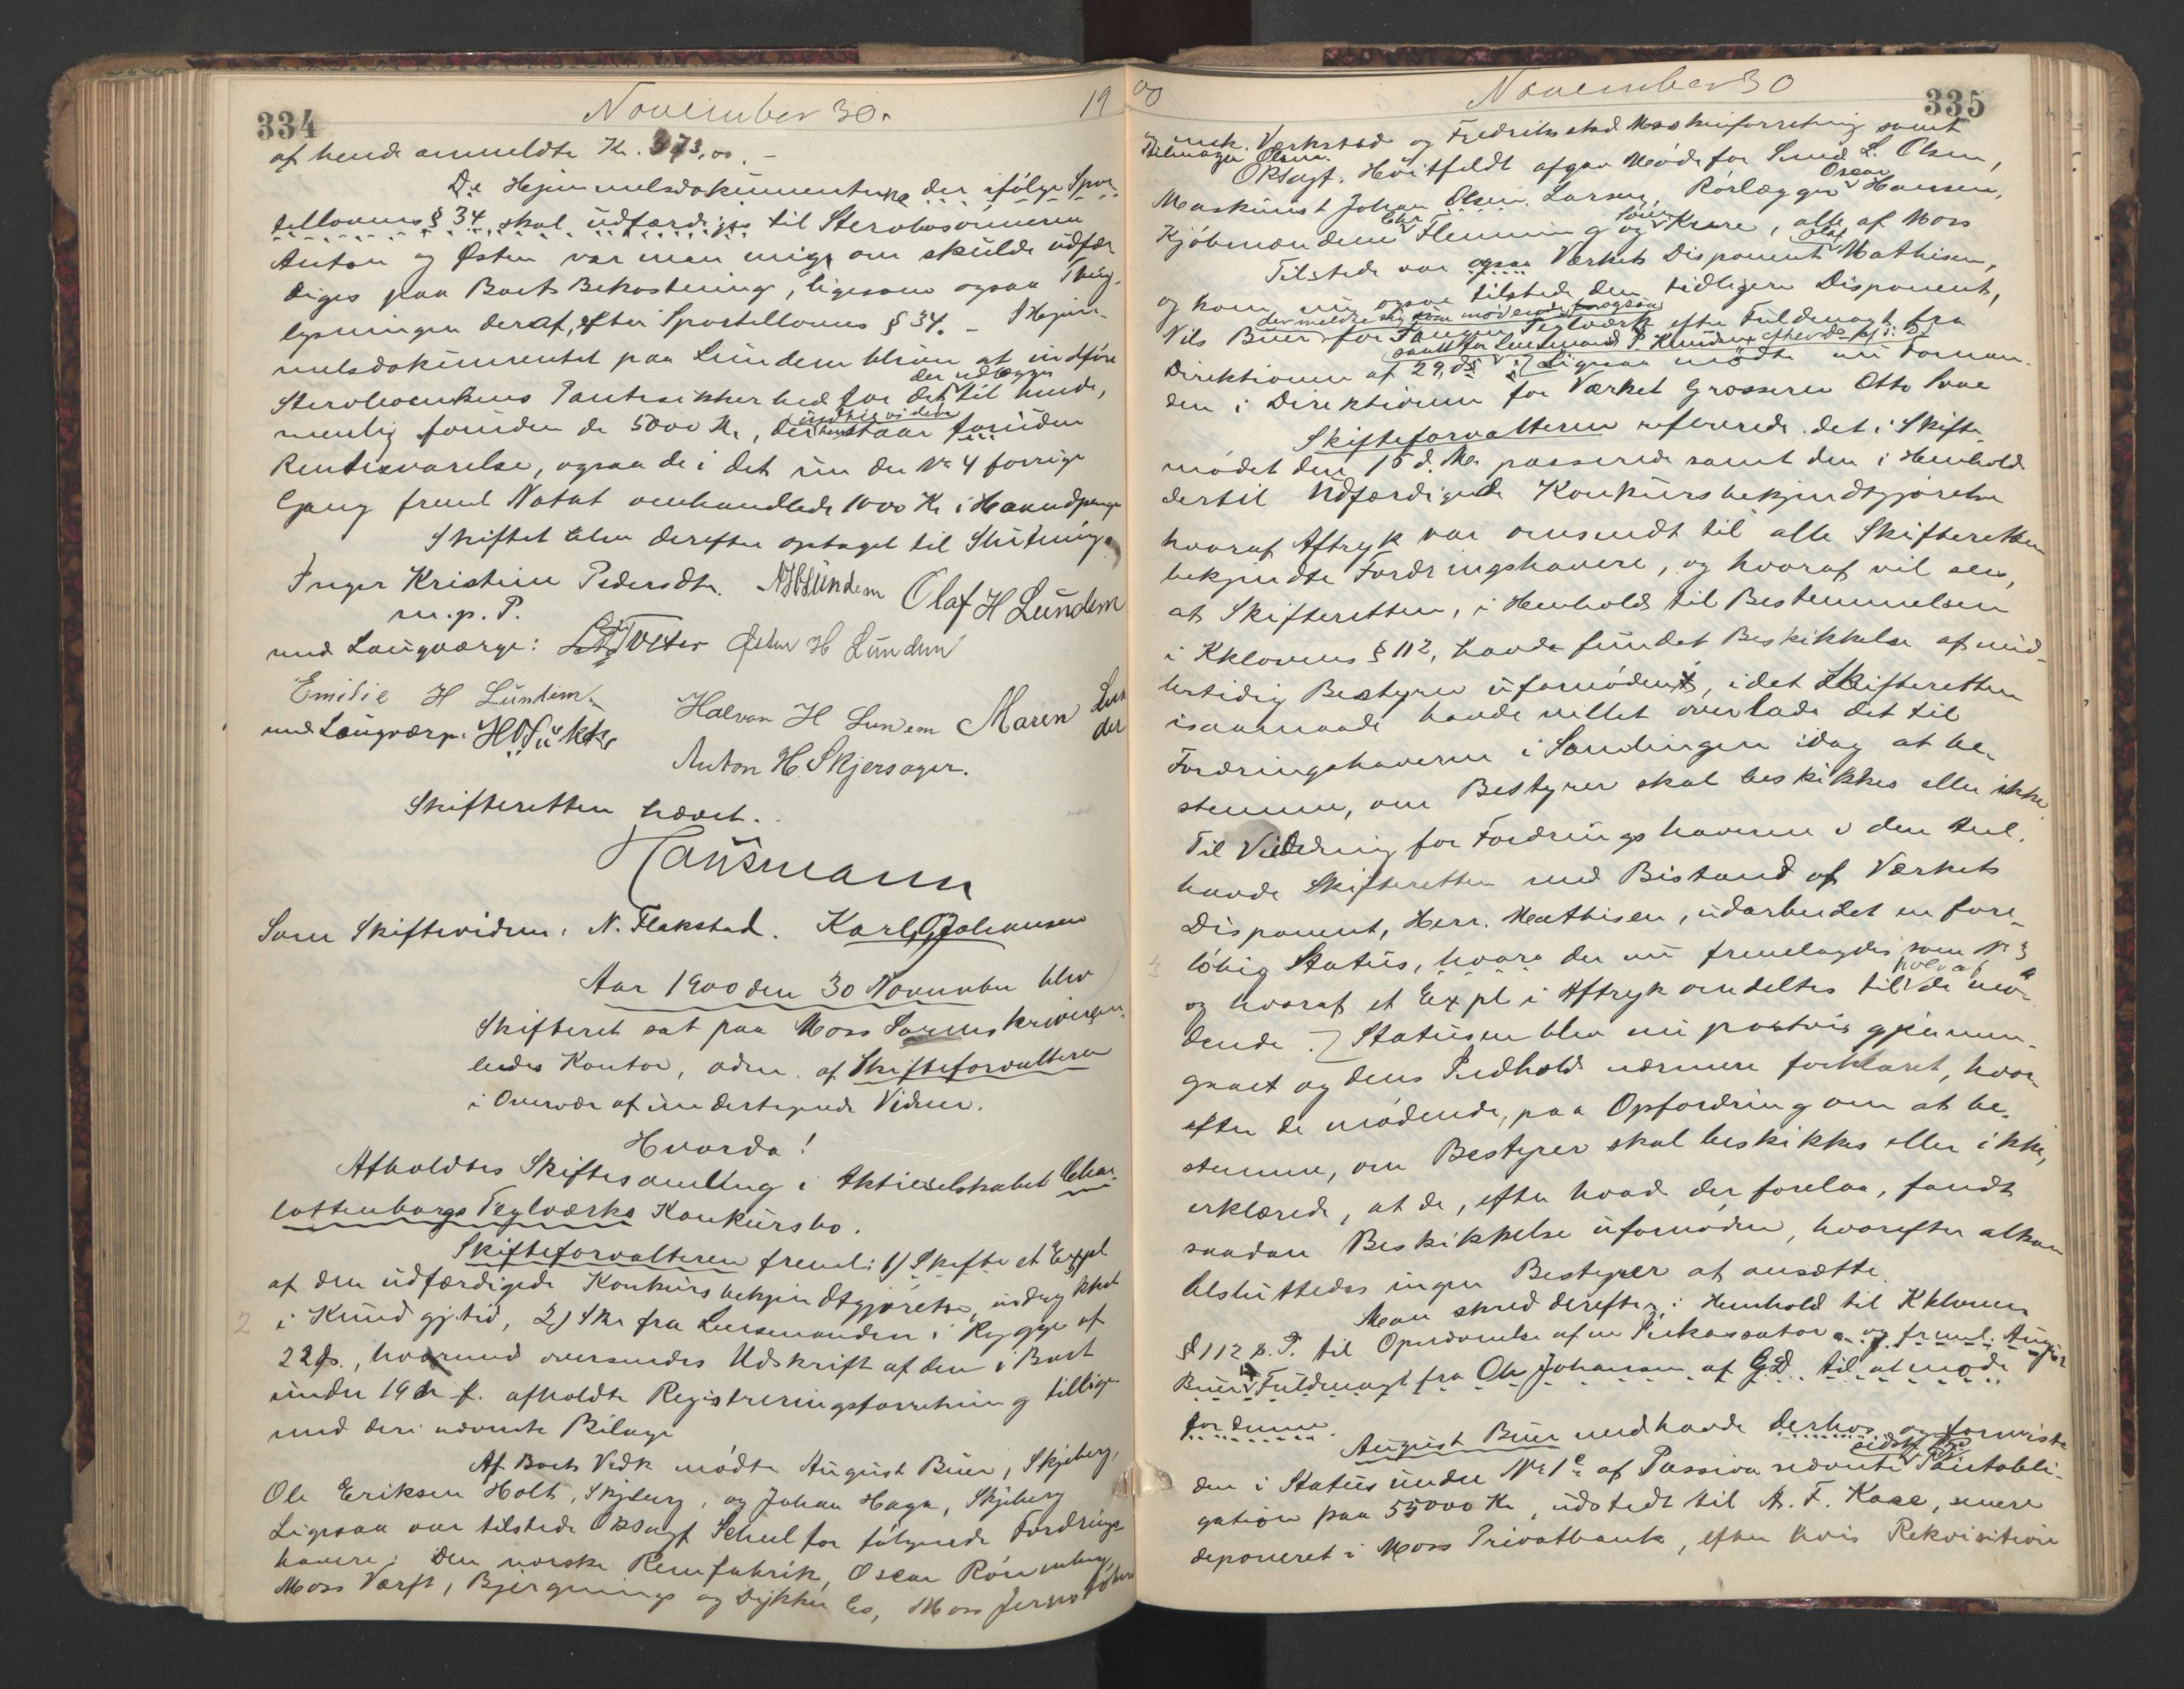 334
November 30.
19
af hende anmeldte Kr. 373,00. –
De Hjemmelsdokumenterne der ifølge Spor-
tellovens § 34 skal udfærdiges til Stervbosønnerne
Anton og Østen var man enige om skulde udfær
diges paa Boets Bekostning, ligesom ogsaa Thing-
lysningen deraf, efter Sportellovens § 34. – I Hjem-
melsdokumentet paa Lundem bliver at indføre
Stervboenkens Pantesikkerhed for det der udlægges til hende,
nemlig foruden de 5000 Kr, der indtil videre henstaar foruden
Rentesvarelse, ogsaa de i det under No 4 forrige
Gang freml Notat omhandlede 1000 Kr i Haandpenge
Skiftet blev derefter optaget til Slutning.
Inger Kristine Pedersdtr. N H Lundem Olaf H Lundem
m. p. P.
med Laugværge: Østen H Lundem
Emilie H Lundem
med Laugværge: Halvor H Lundem Maren Lun
der
Anton H. Skjersager.
Skifteretten hævet.
Hausmann
Som Skiftevidner: N. Flakstad. Karl G Johansen
Aar 1900 den 30 November blev
Skifteret sat paa Moss Sorenskriverem-
bedes Kontor, adm. af Skifteforvalteren
i Overvær af undertegnede Vidner.
Hvorda!
Afholdtes Skiftesamling i Aktieselskabet Char-
lottenborgs Teglværks Konkursbo.
Skifteforvalteren freml: 1) Skifte et Expl
af den udfærdigede Konkursbekjendtgjørelse, indrykket
2
i Kundgj.tid, 2) Skr fra Lensmanden i Rygge af
22 ds., hvormed oversendes Udskrift af den i Boet
under 19 d. f. afholdte Registreringsforretning tillige
med deri nævnte Bilage
Af Boets Vedk mødte August Buer, Skjeberg,
Ole Eriksen Holt, Skjeberg, og Johan Haga, Skjeberg
Ligesaa var tilstede ORsagf Scheel for følgende Fordrings
havere: Den norske Remfabrik, Oscar Rönnenberg,
Moss Værft, Bjergnings og Dykker Co, Moss Jernstøberi
00
November 30
335
og mek. Værksted og Fredriksstad Maskinforretning samt
Hjulmager Olsen.
ORsagf. Hvitfeldt afgav Møde for Smed L. Olsen,
Maskinist Johan Olsen Larsen, Rørlægger Oscar Hansen,
Kjøbmændene Chr Flemming og Søren Krare, alle af Moss
Tilstede var ogsaa Værkets Disponent Olaf Mathisen,
og kom nu ogsaa tilstede den tidligere Disponent,
Nils Buer der meldte sig som mødende ogsaa for Teglværk efter Fuldmagt fra
Direktionen af 29 ds samt for Lensmand P. Knudsen efter do af i D. Ligesaa mødte nu Forman-
den i Direktionen for Værket Grosserer Otto Saae
Skifteforvalteren refererede det i Skifte
mødet den 15 d. M. passerede samt den i Henhold
dertil Udfærdigede Konkursbekjendtgjørelse
hvoraf Aftryk var omsendt til alle Skifteretten
bekjendte Fordringshavere, og hvoraf vil sees,
at Skifteretten, i Henhold til Bestemmelsen
i Kklovens § 112, havde fundet Beskikkelse af mid-
lertidig Bestyrer ufornødent, idet Skifteretten
isaamaade havde villet overlade det til
Fordringshaverne i Samlingen idag at be-
stemme, om Bestyrer skal beskikkes eller ikke
Til Veiledning for Fordringshaverne i den Anl.
havde Skifteretten med Bistand af Værkets
Disponent, Herr. Mathisen, udarbeidet en fore-
3
løbig Status, hvoraf der nu fremlagdes som No 3
og hvoraf et Expl i Aftryk omdeltes til hver af de mø-
dende. Statusen blev nu postvis gjennem-
gaaet og dens Indhold nærmere forklaret, hvor-
efter de mødende, paa Opfordring om at be-
stemme, om Bestyrer skal beskikkes eller ikke,
erklærede, at de, efter hvad der forelaa, fandt
saadan Beskikkelse ufornøden, hvorefter altsaa
besluttedes ingen Bestyrer at ansætte.
Man skred derefter, i Henhold til Kkloven
§ 112 s. P. til Opnævnelse af en Inkassator, og freml. August
Buer Fuldmagt fra Ole Johansen af G.D. til at møde
for denne.
August Buer medhavde derhos og foreviste
den i Status under No 1 e af Passiva nævnte sidste Pantobli-
gation paa 55000 Kr, udstedt til A. F. Kaae, senere
deponeret i Moss Privatbank, efter hvis Rekvisition